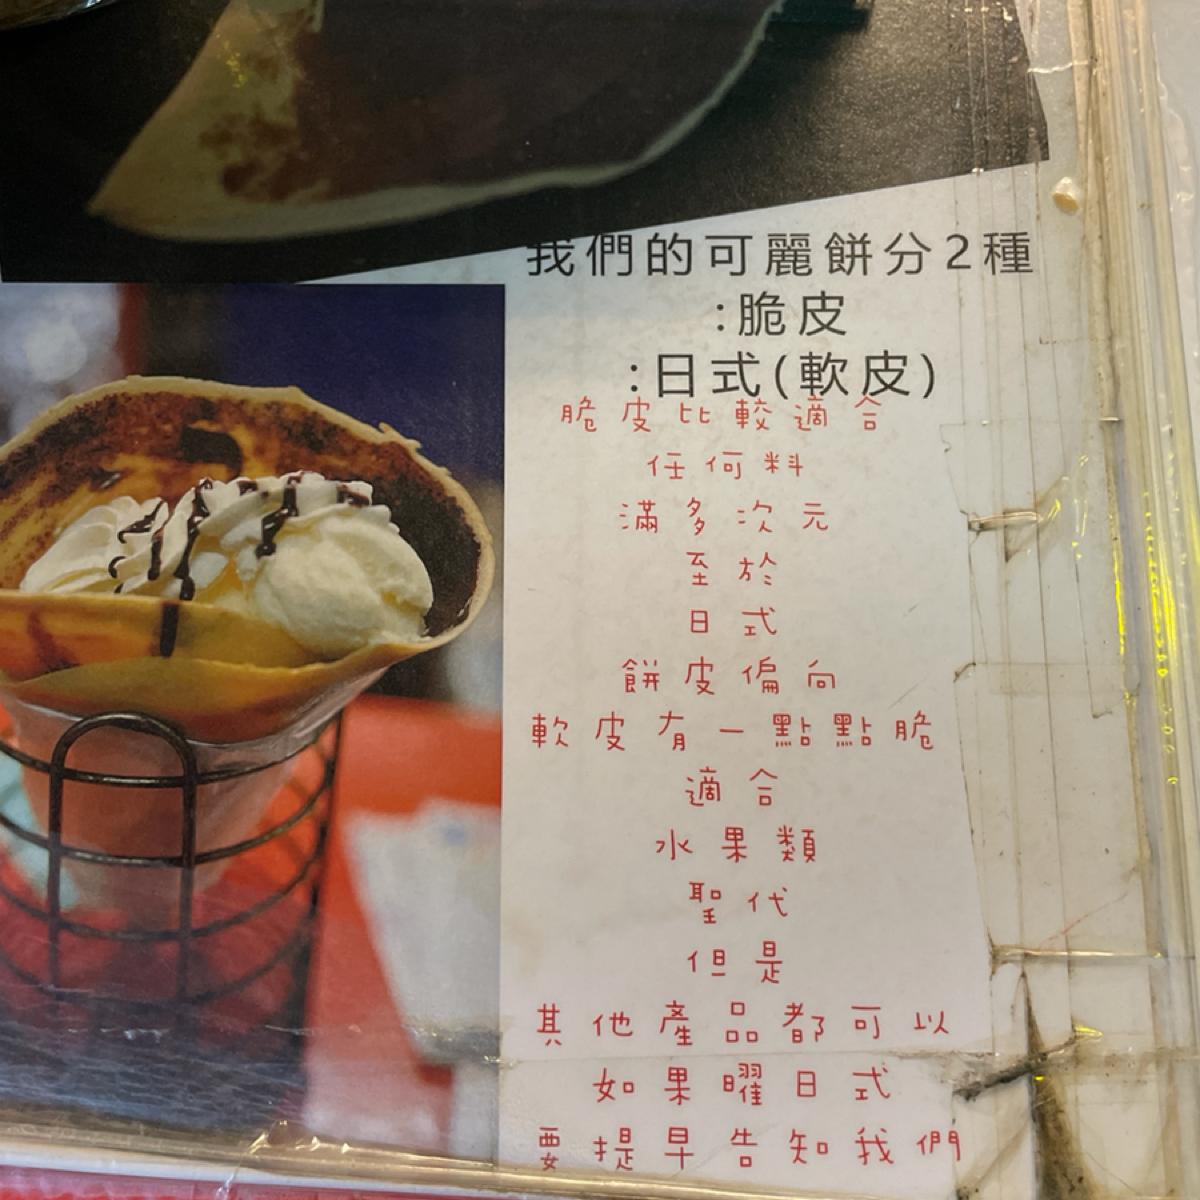 我們的可麗餅分2種
:脆皮
:日式(軟皮)
脆皮比較適合
任何料
滿多次元
至於
日式
餅皮偏向
軟皮有一點點脆
適合
水果類
聖代
但是
其他產品都可以
如果曜日式
要提早告知我們